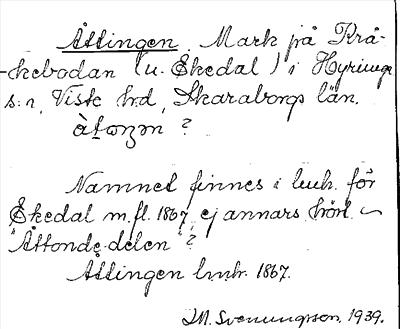 Åttingen. Mark på Krå-
kebodan (u. Ekedal) i Hyringa
s:n, Viste hrd, Skaraborgs län.
?
Namnet finnes i för
Ekedal m.fl. 1867, ej annars hört. ~
"Åttonde delen"?
Åttingen lmhr. 1867.
M. Svenungsson. 1939.